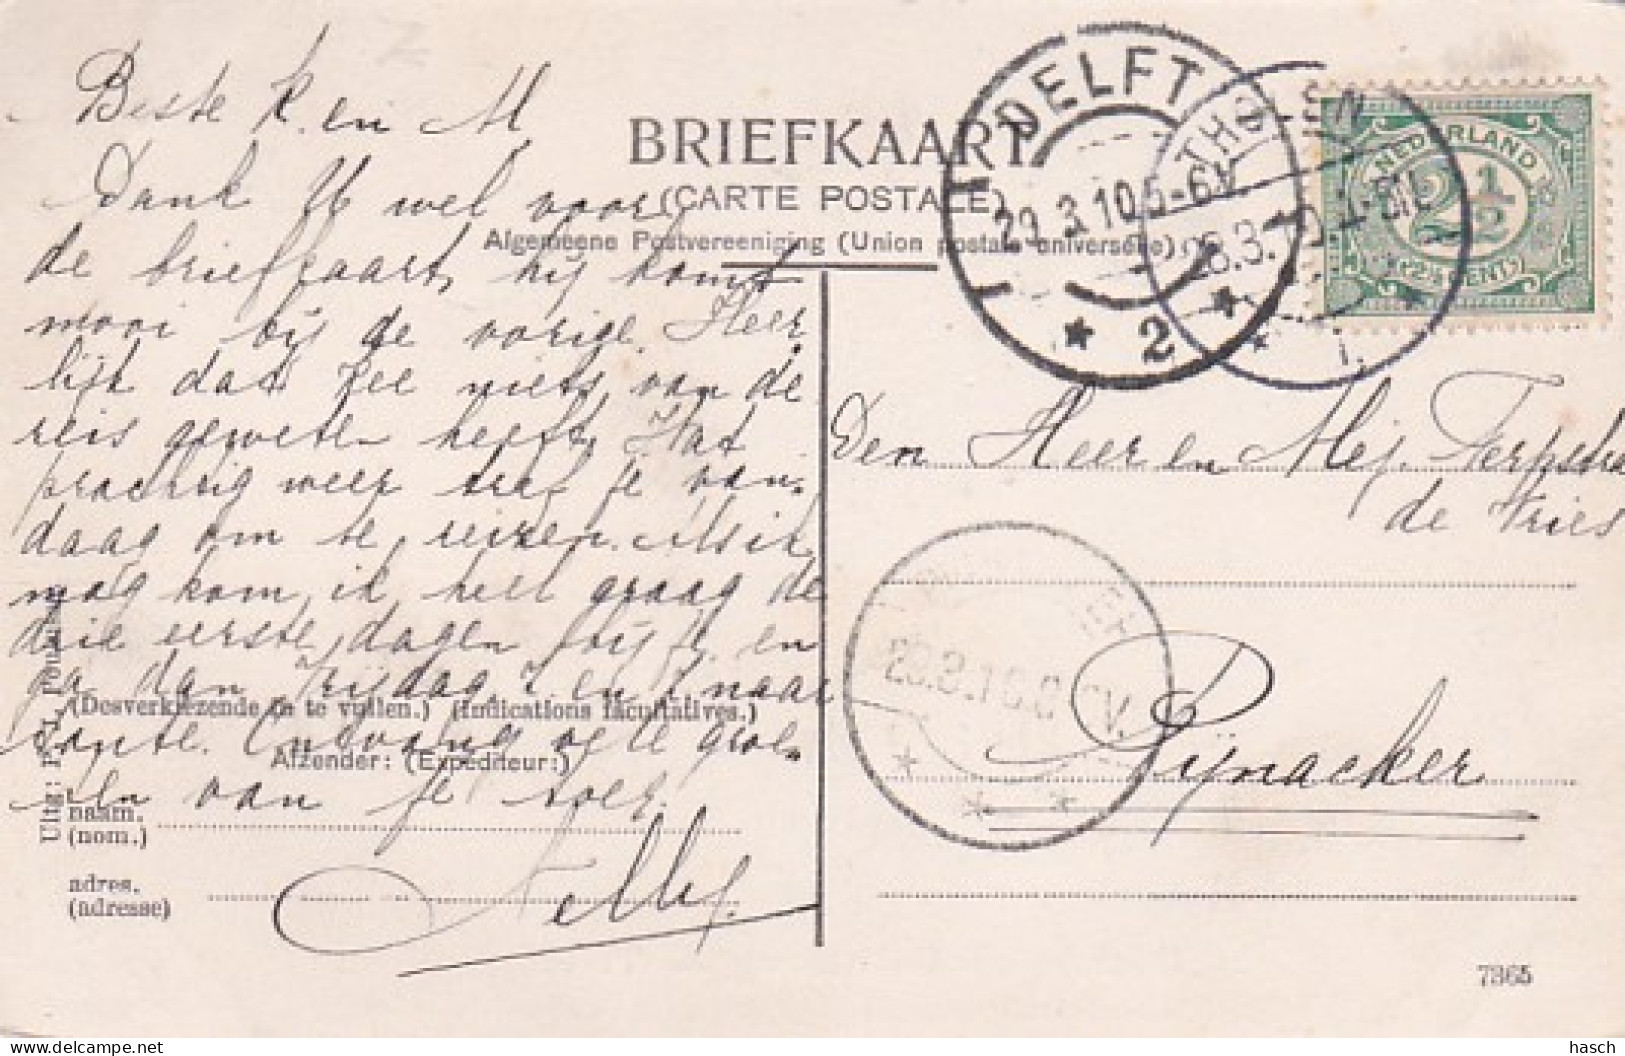 Beste K. en M
Dank U wel voor
de briefkaart, hij komt
mooi bij de vorige. Heer
lijk dat Zee niets van de
reis geweten heeft. Wat
prachtig weer trof je van
daag om te reizen. Als ik
mag kom ik heel graag de
drie eerste dagen bij je en
ga dan Vrijdag
tante. Ontvang vele groe
ten van je zoes.
Nelly.
BRIEFKAART
(CARTE POSTALE)
Algemeene Postvereeniging (Union postale universelle)
DELFT
29.3.10.5-6V
2
THOLEN
NEDERLAND
2½
2½ CENT
Den Heer en Mej. Terpstra
de Vries
Pijnacker
(Desverkiezende in te vullen.) (Indications facultatives.)
Afzender: (Expéditeur:)
naam.
(nom.)
adres.
(adresse)
Uitg.:
7365
hasch